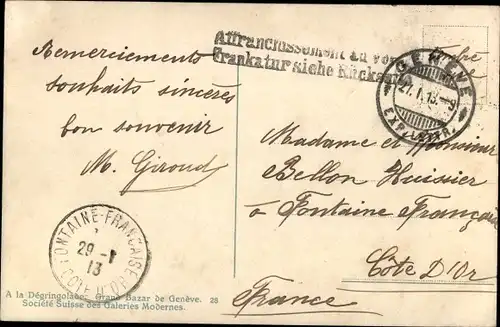 Remerciements
souhaits sincères
bon souvenir
M. Giroud
Affranchissement au verso
Frankatur siehe Rückseite
GENÈVE
27.I.13.-9
EXP. LETTR.
Madame et Monsieur
Bellon Huissier
à Fontaine Française
Côte D'Or
France
FONTAINE-FRANÇAISE
29-1
13
CÔTE D'OR
A la Dégringolade: Grand Bazar de Genève. 28
Société Suisse des Galeries Modernes.